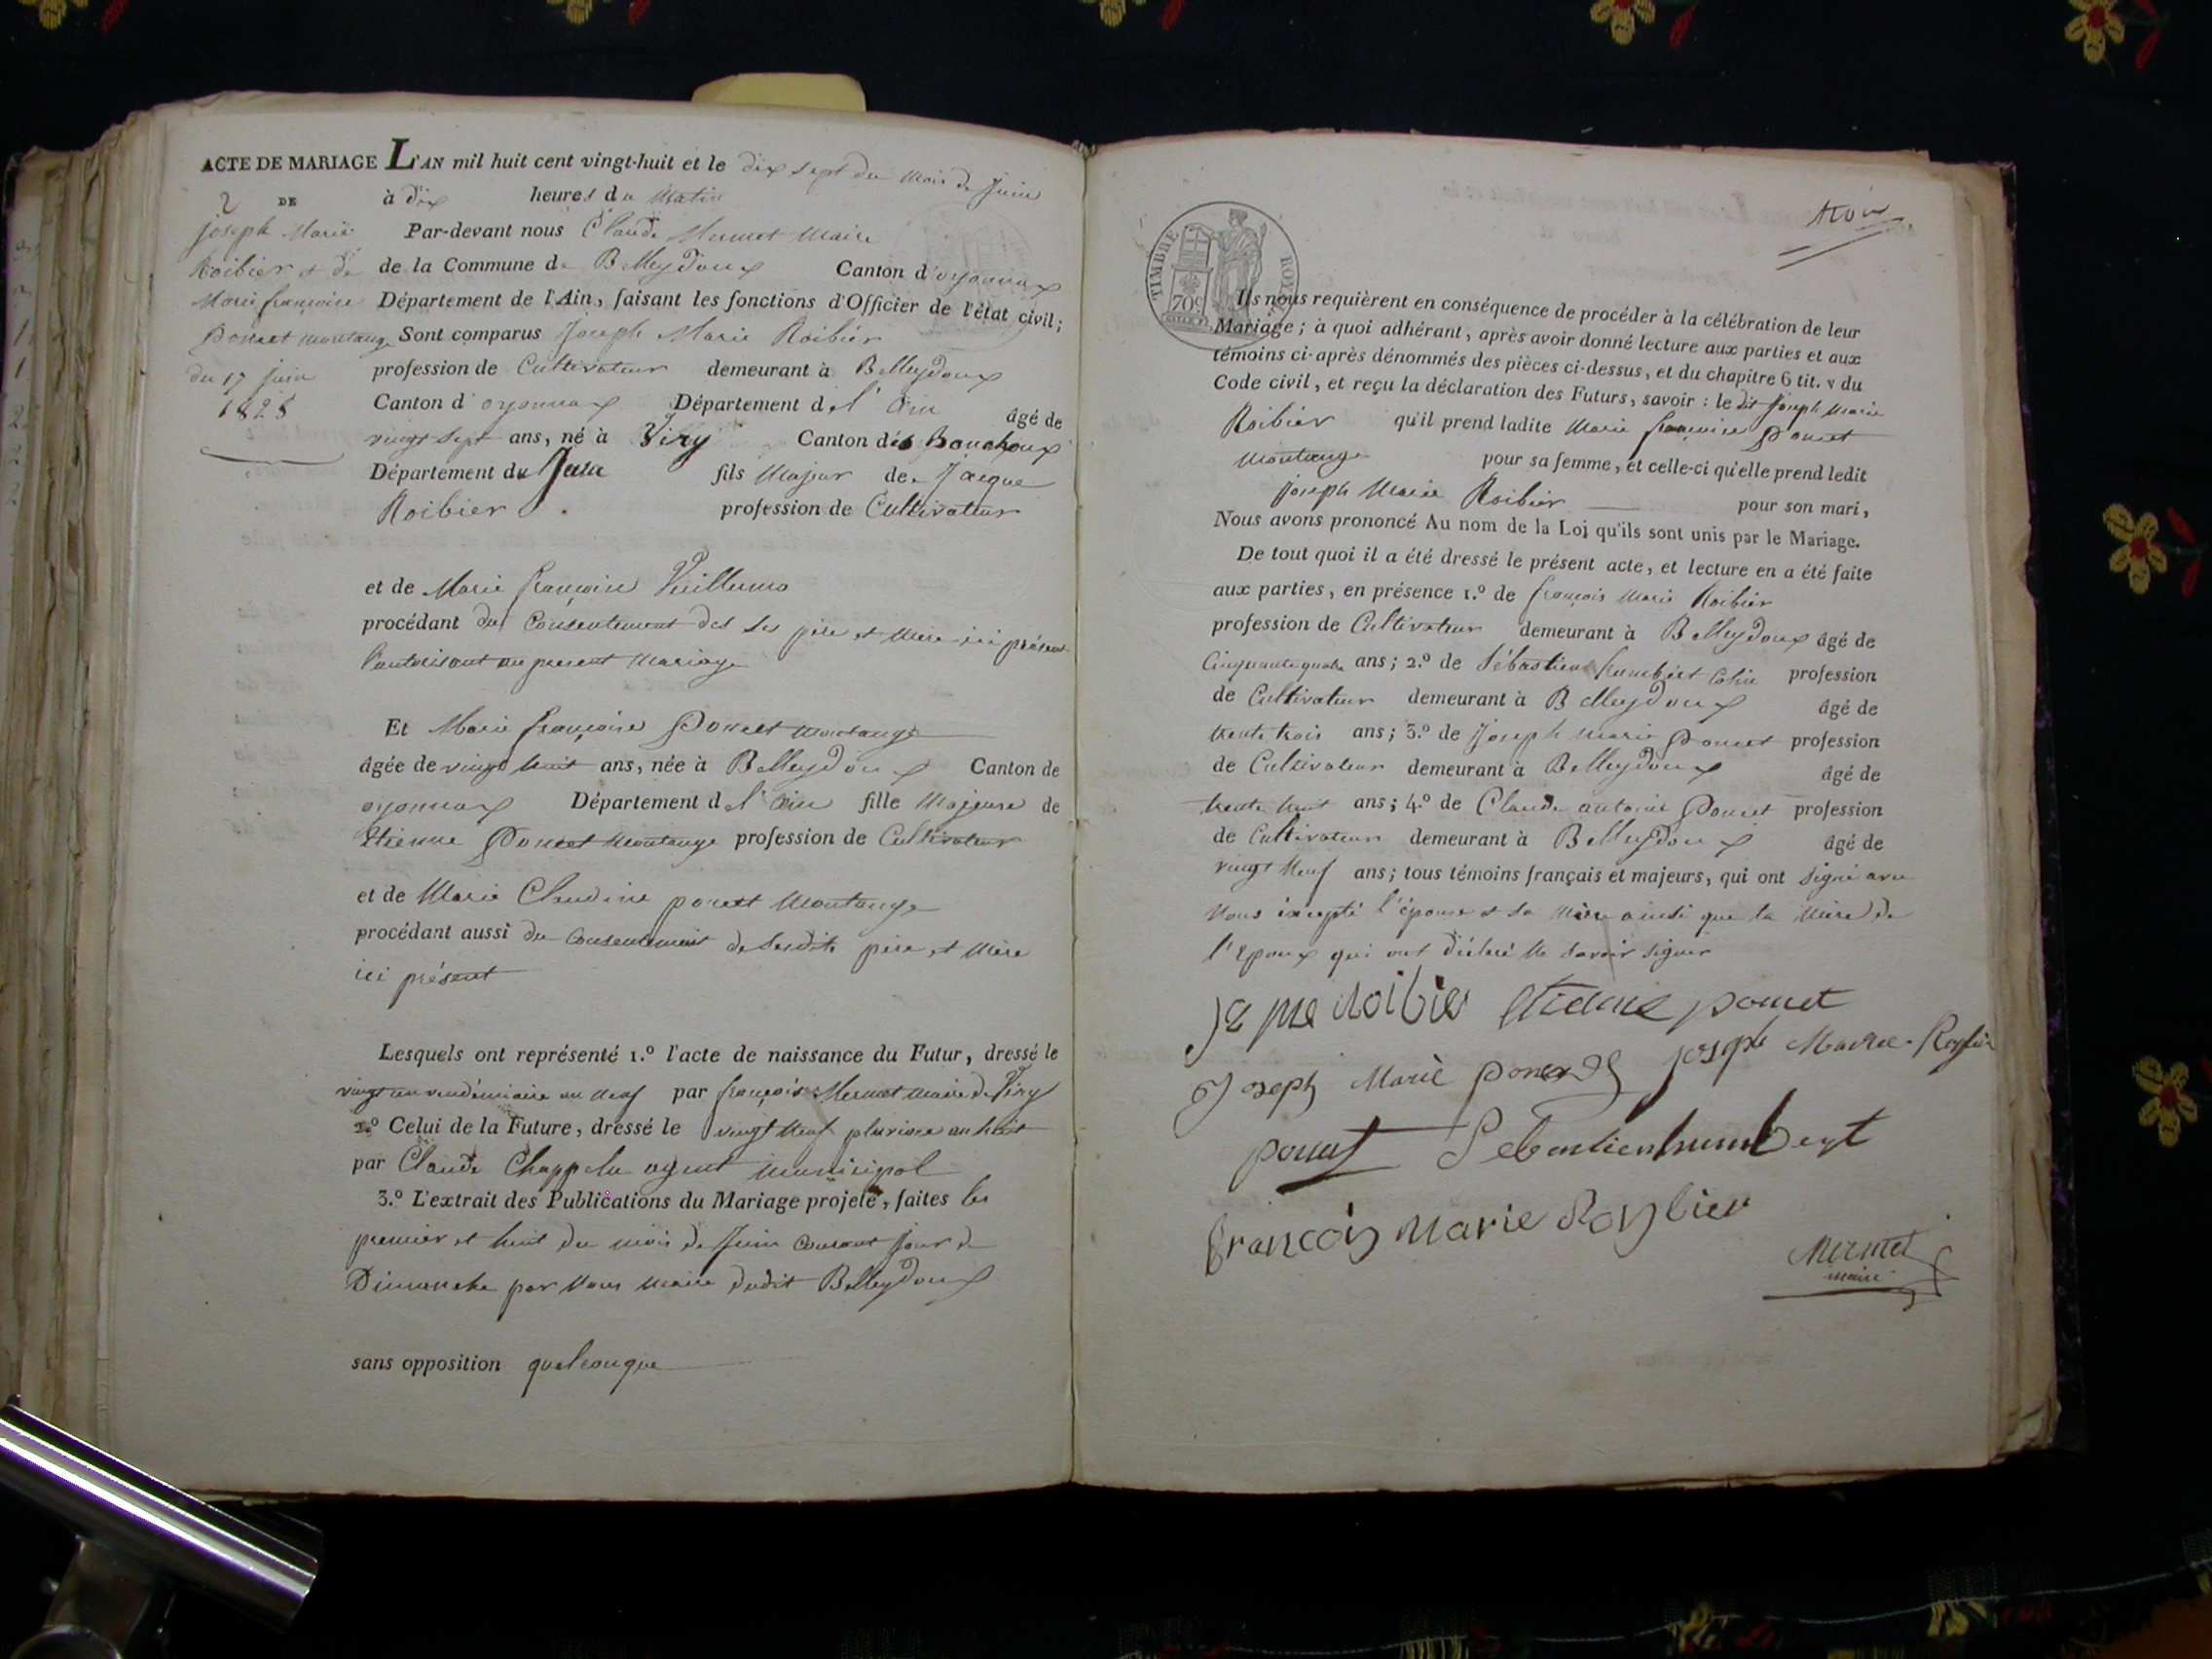 ACTE DE MARIAGE L'AN mil huit cent vingt-huit et le dix sept du mois de Juin
2 DE
joseph Marie
Roibier et de
Marie françoise
Poncet montange
du 17 juin
1828
à dix heures du Matin
Par-devant nous Claude Mermet Maire
de la Commune de Belleydoux Canton d'oyonnax
Département de l'Ain, faisant les fonctions d'Officier de l'état civil;
Sont comparus Joseph Marie Roibier
profession de Cultivateur demeurant à Belleydoux
Canton d'oyonnax Département de l'ain âgé de
vingt sept ans, né à Viry Canton des bouchoux
Département du Jura fils Majeur de Jacque
Roibier profession de Cultivateur
et de Marie françoise Vuillermo
procédant du Consentement des ses père et Mère ici présent
l'autorisant au present Mariage
Et Marie françoise Poncet montange
âgée de vingt huit ans, née à Belleydoux Canton de
oyonnax Département de l'ain fille Majeure de
Etienne Poncet Montange profession de Cultivateur
et de Marie Claudine poncet Montange
procédant aussi du Consentement de sesdits père et Mère
ici présent
Lesquels ont représenté 1.º l'acte de naissance du Futur, dressé le
vingt un vendémiaire an neuf par françois Mermet maire de Viry
2.º Celui de la Future, dressé le vingt neuf pluviose an huit
par Claude Chappelu agent municipal
3.º L'extrait des Publications du Mariage projeté, faites les
premier et huit du mois de Juin Courant jour de
Dimanche par Nous Maire dudit Belleydoux
sans opposition quelconque
trois
TIMBRE ROYAL
70c
Ils nous requièrent en conséquence de procéder à la célébration de leur
Mariage; à quoi adhérant, après avoir donné lecture aux parties et aux
témoins ci-après dénommés des pièces ci-dessus, et du chapitre 6 tit. v du
Code civil, et reçu la déclaration des Futurs, savoir : le dit Joseph Marie
Roibier qu'il prend ladite Marie françoise Poncet
Montange pour sa femme, et celle-ci qu'elle prend ledit
Joseph Marie Roibier pour son mari,
Nous avons prononcé Au nom de la Loi qu'ils sont unis par le Mariage.
De tout quoi il a été dressé le présent acte, et lecture en a été faite
aux parties, en présence 1.º de françois Marie Roibier
profession de Cultivateur demeurant à Belleydoux âgé de
Cinquante quatre ans; 2.º de Sébastien humbert Colin profession
de Cultivateur demeurant à Belleydoux âgé de
trente trois ans; 3.º de Joseph marie Poncet profession
de Cultivateur demeurant à Belleydoux âgé de
trente huit ans; 4.º de Claude antoine Poncet profession
de Cultivateur demeurant à Belleydoux âgé de
vingt Neuf ans; tous témoins français et majeurs, qui ont signé avec
Nous éxcepté l'épouse et sa Mère ainsi que la Mère de
l'Epoux qui ont déclaré ne savoir signer
roibier Etienne poncet
Joseph Marie poncet joseph Marie Roybier
poncet Sebastien humbert
francois Marie Roybier
Mermet
maire